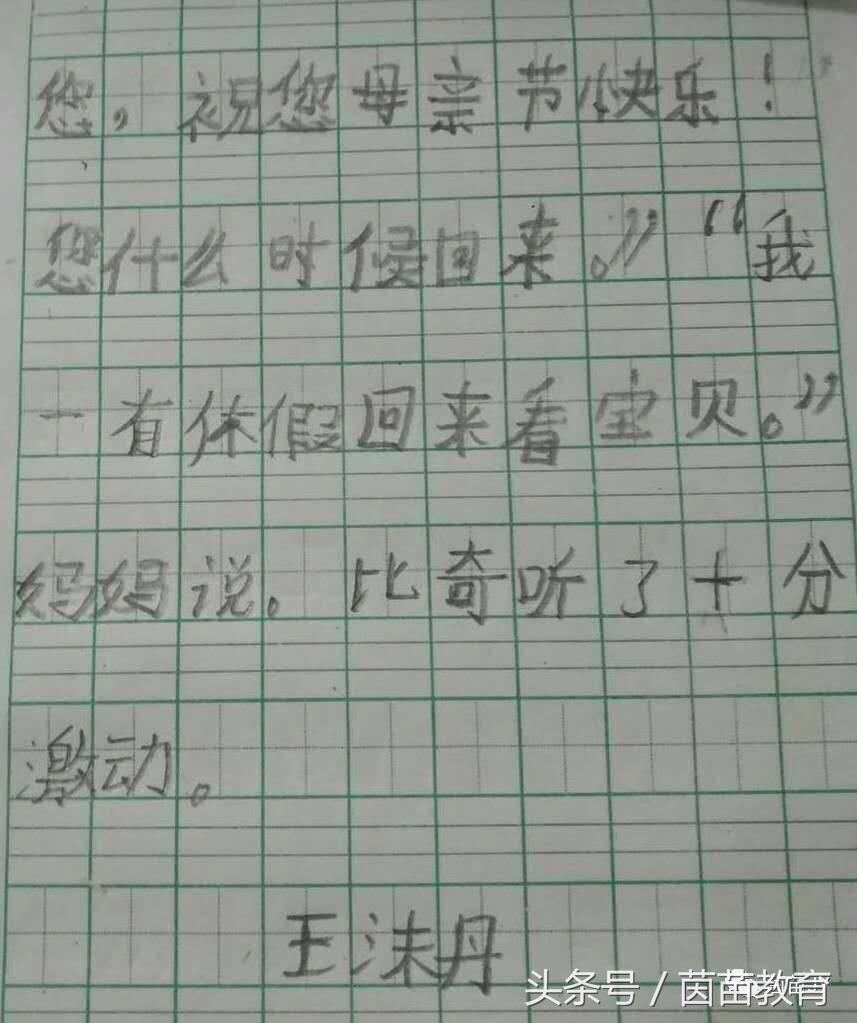 您，祝您母亲节快乐！
您什么时候回来。”“我
一有休假回来看宝贝。”
妈妈说。比奇听了十分
激动。
王沫丹
头条号 / 茵苗教育